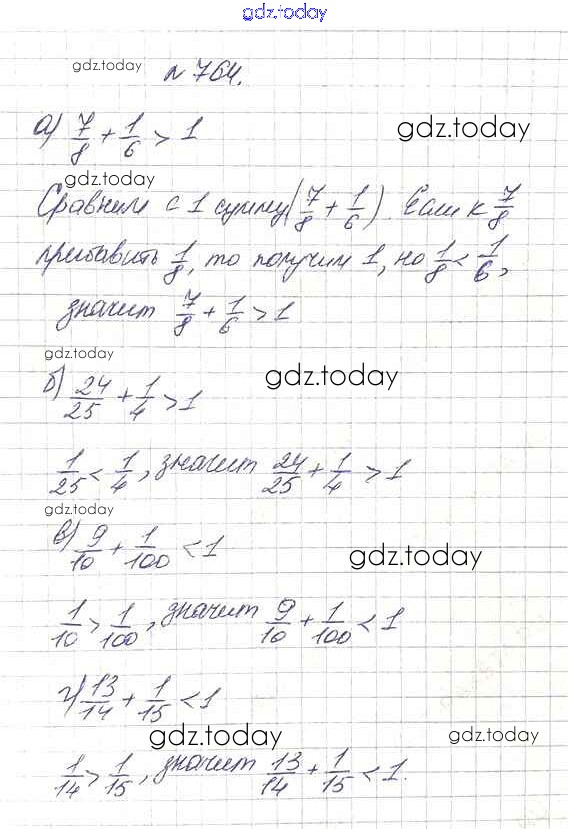 gdz.today
gdz.today
№ 764.
а) 7/8 + 1/6 > 1
gdz.today
gdz.today
Сравним с 1 сумму (7/8 + 1/6). Если к 7/8
прибавить 1/8, то получим 1, но 1/8 < 1/6,
значит 7/8 + 1/6 > 1
gdz.today
gdz.today
б) 24/25 + 1/4 > 1
1/25 < 1/4, значит 24/25 + 1/4 > 1
gdz.today
в) 9/10 + 1/100 < 1
gdz.today
1/10 > 1/100, значит 9/10 + 1/100 < 1
г) 13/14 + 1/15 < 1
gdz.today
gdz.today
1/14 > 1/15, значит 13/14 + 1/15 < 1.